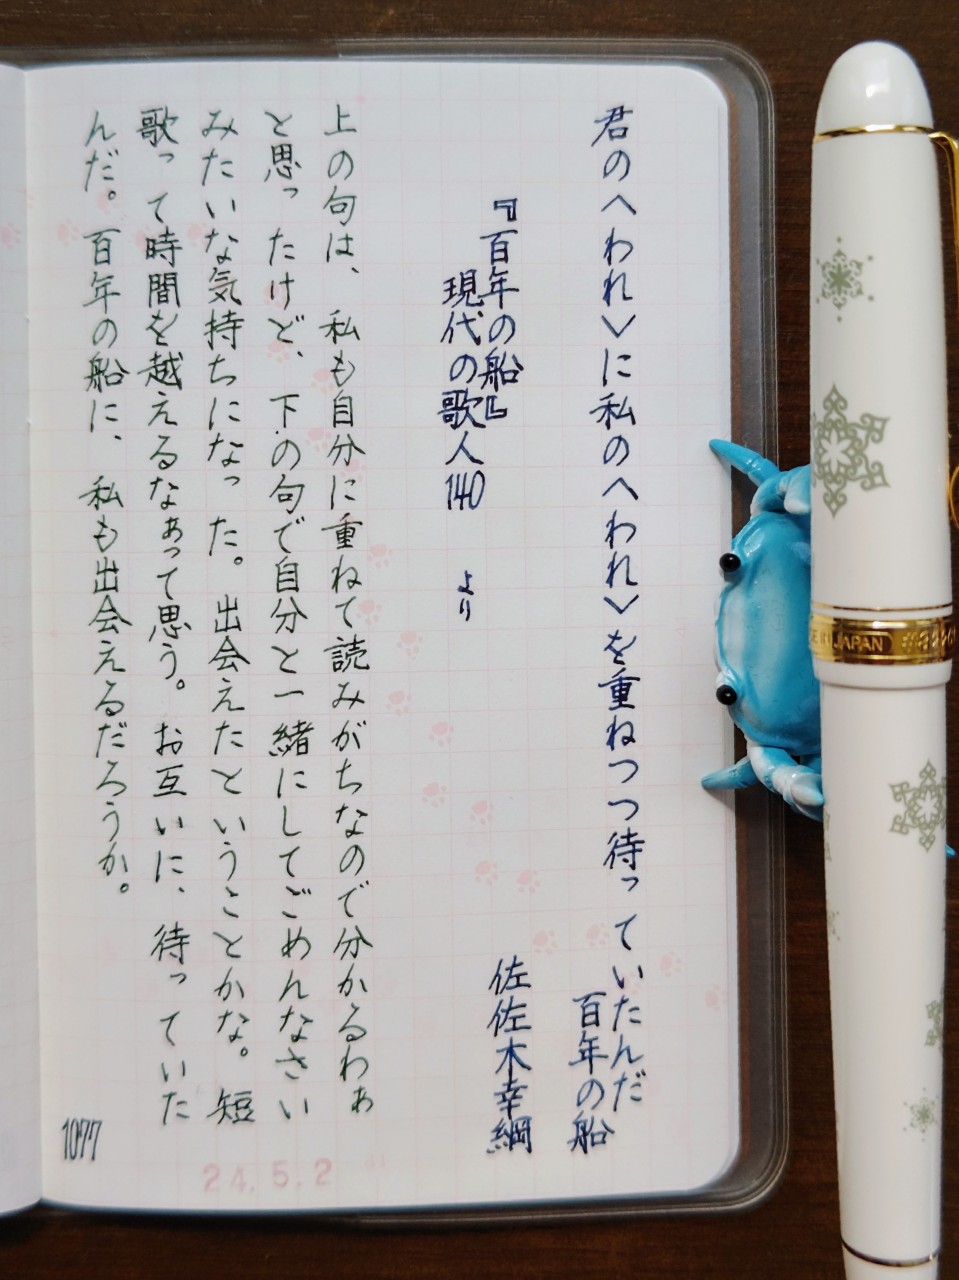 君の〈われ〉に私の〈われ〉を重ねつつ待っていたんだ
百年の船
『百年の船』 佐佐木幸綱
現代の歌人140 より
上の句は、私も自分に重ねて読みがちなので分かるわぁ
と思ったけど、下の句で自分と一緒にしてごめんなさい
みたいな気持ちになった。出会えたということかな。短
歌って時間を越えるなぁって思う。お互いに、待っていた
んだ。百年の船に、私も出会えるだろうか。
1077
24.5.2
JAPAN